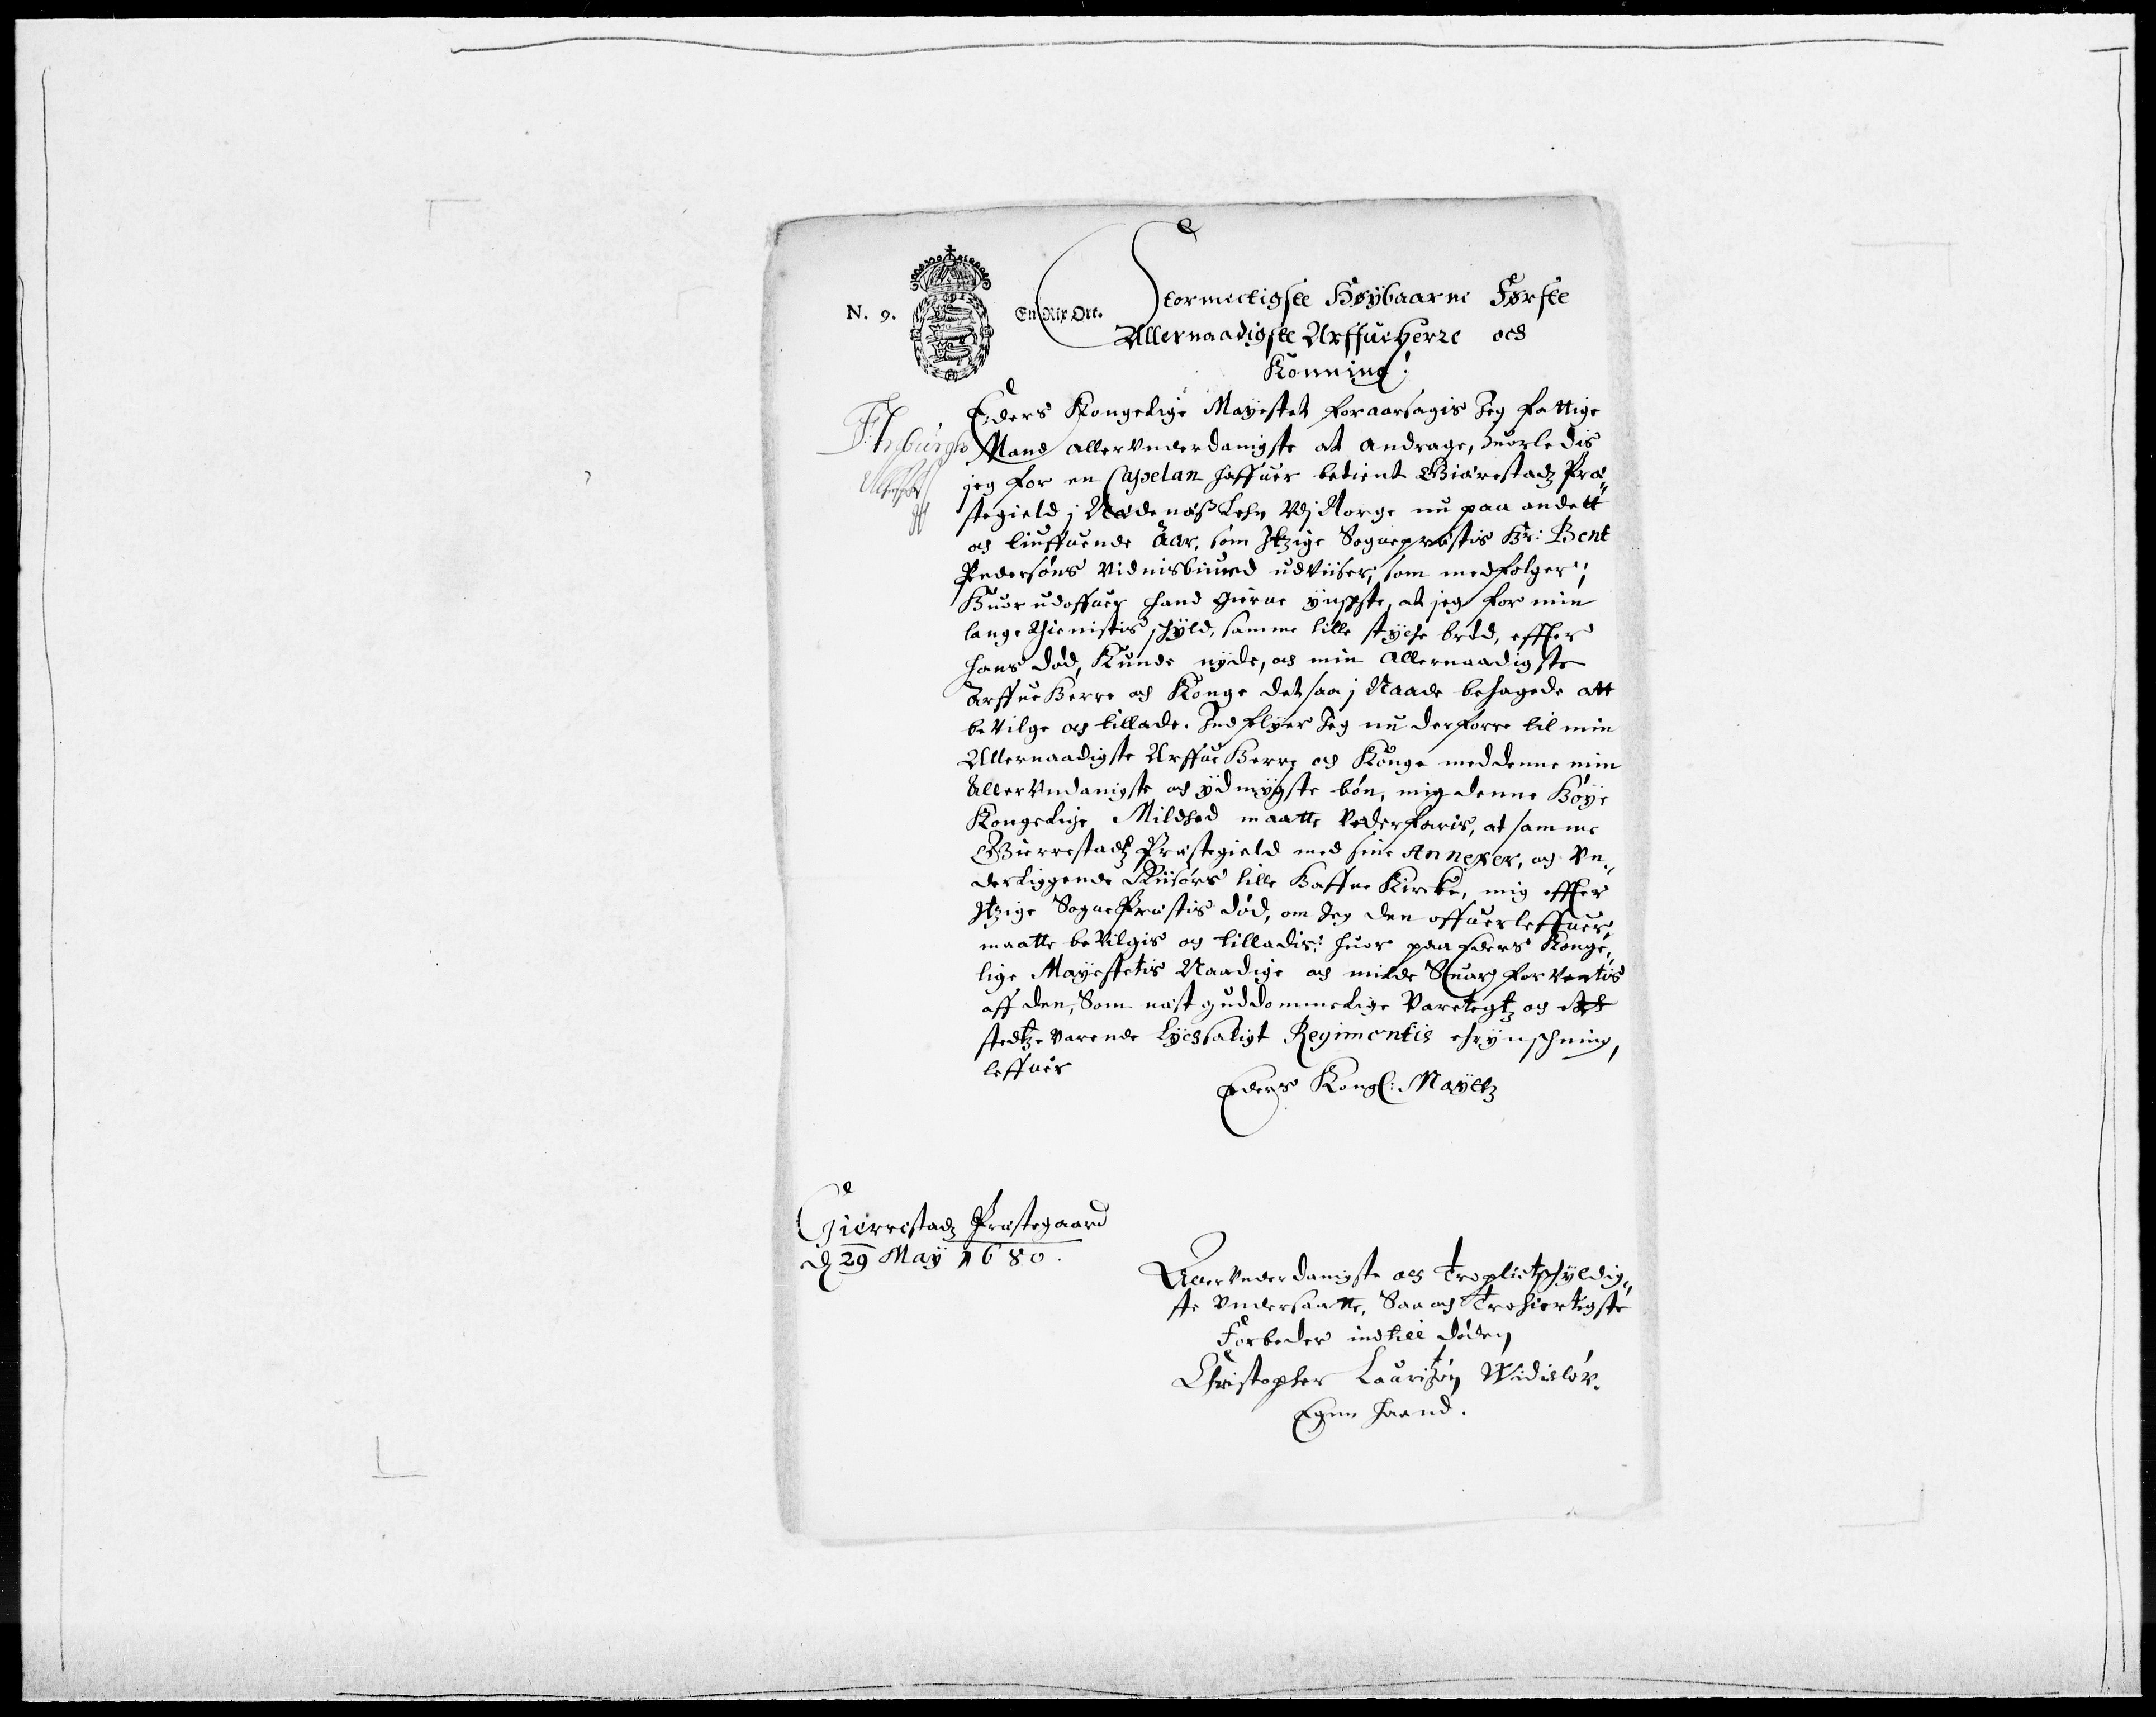 N. 9.
En Rix Ort.
Stormectigste Høÿbaarne Førstte
Allernaadigste Arffue herre och
Konning.
Eders Kongelige Mayestet foraarsagis Jeg fattige
Mand allervnderdanigste at andrage, huorledis
jeg for en Capelan haffuer betient Giærestadz Præ¬
stegield j Nædenæs Lehn udj Norge nu paa andett
og tiuffuende Aar, som Itzige Sogneprestis Hr: Bent
Pedersøns vidnisbiurd udviiser, som medfølger;
Huor udoffuer hand gierne ynschte, at jeg for min
lange thienistis schyld, samme lille styche brød, effter
hans død, kunde nyde, og min Allernaadigste
Arffue Herre og Konge det saa j Naade behagede att
bevilge og tillade. Indflyer Jeg nu derforre til min
Allernaadigste Arffue Herre og Konge med denne min
Allervndanigste og ydmygste bøn, mig denne Høye
Kongelige Mildhed maatte vederfaris, at samme
Gierrestadtz Prestegield med sine Annexer, og vn¬
derliggende Riisørs lille Haffne Kircke, mig effter
Itzige Sogne Prestis død, om Jeg den offuerleffuer,
maatte bevilgis og tilladis: huor paa Eders Konge¬
lige Mayestetis Naadige og milde Suar forventis
aff den, Som næst guddommelige varetegtz og
stedtze varende Lychsaligt Regimentis ehrynschning,
leffuer
Eders Kongl: Maÿttz
Gierrestadz Præstegaard
d 29 Maÿ 1680.
Allervnderdanigste och Tropligtschyldig¬
ste vndersaatte, Saa og Trohiertigste
Forbeder indtill døden
Christopher Lauritzøn Widisløv.
Egen haand.